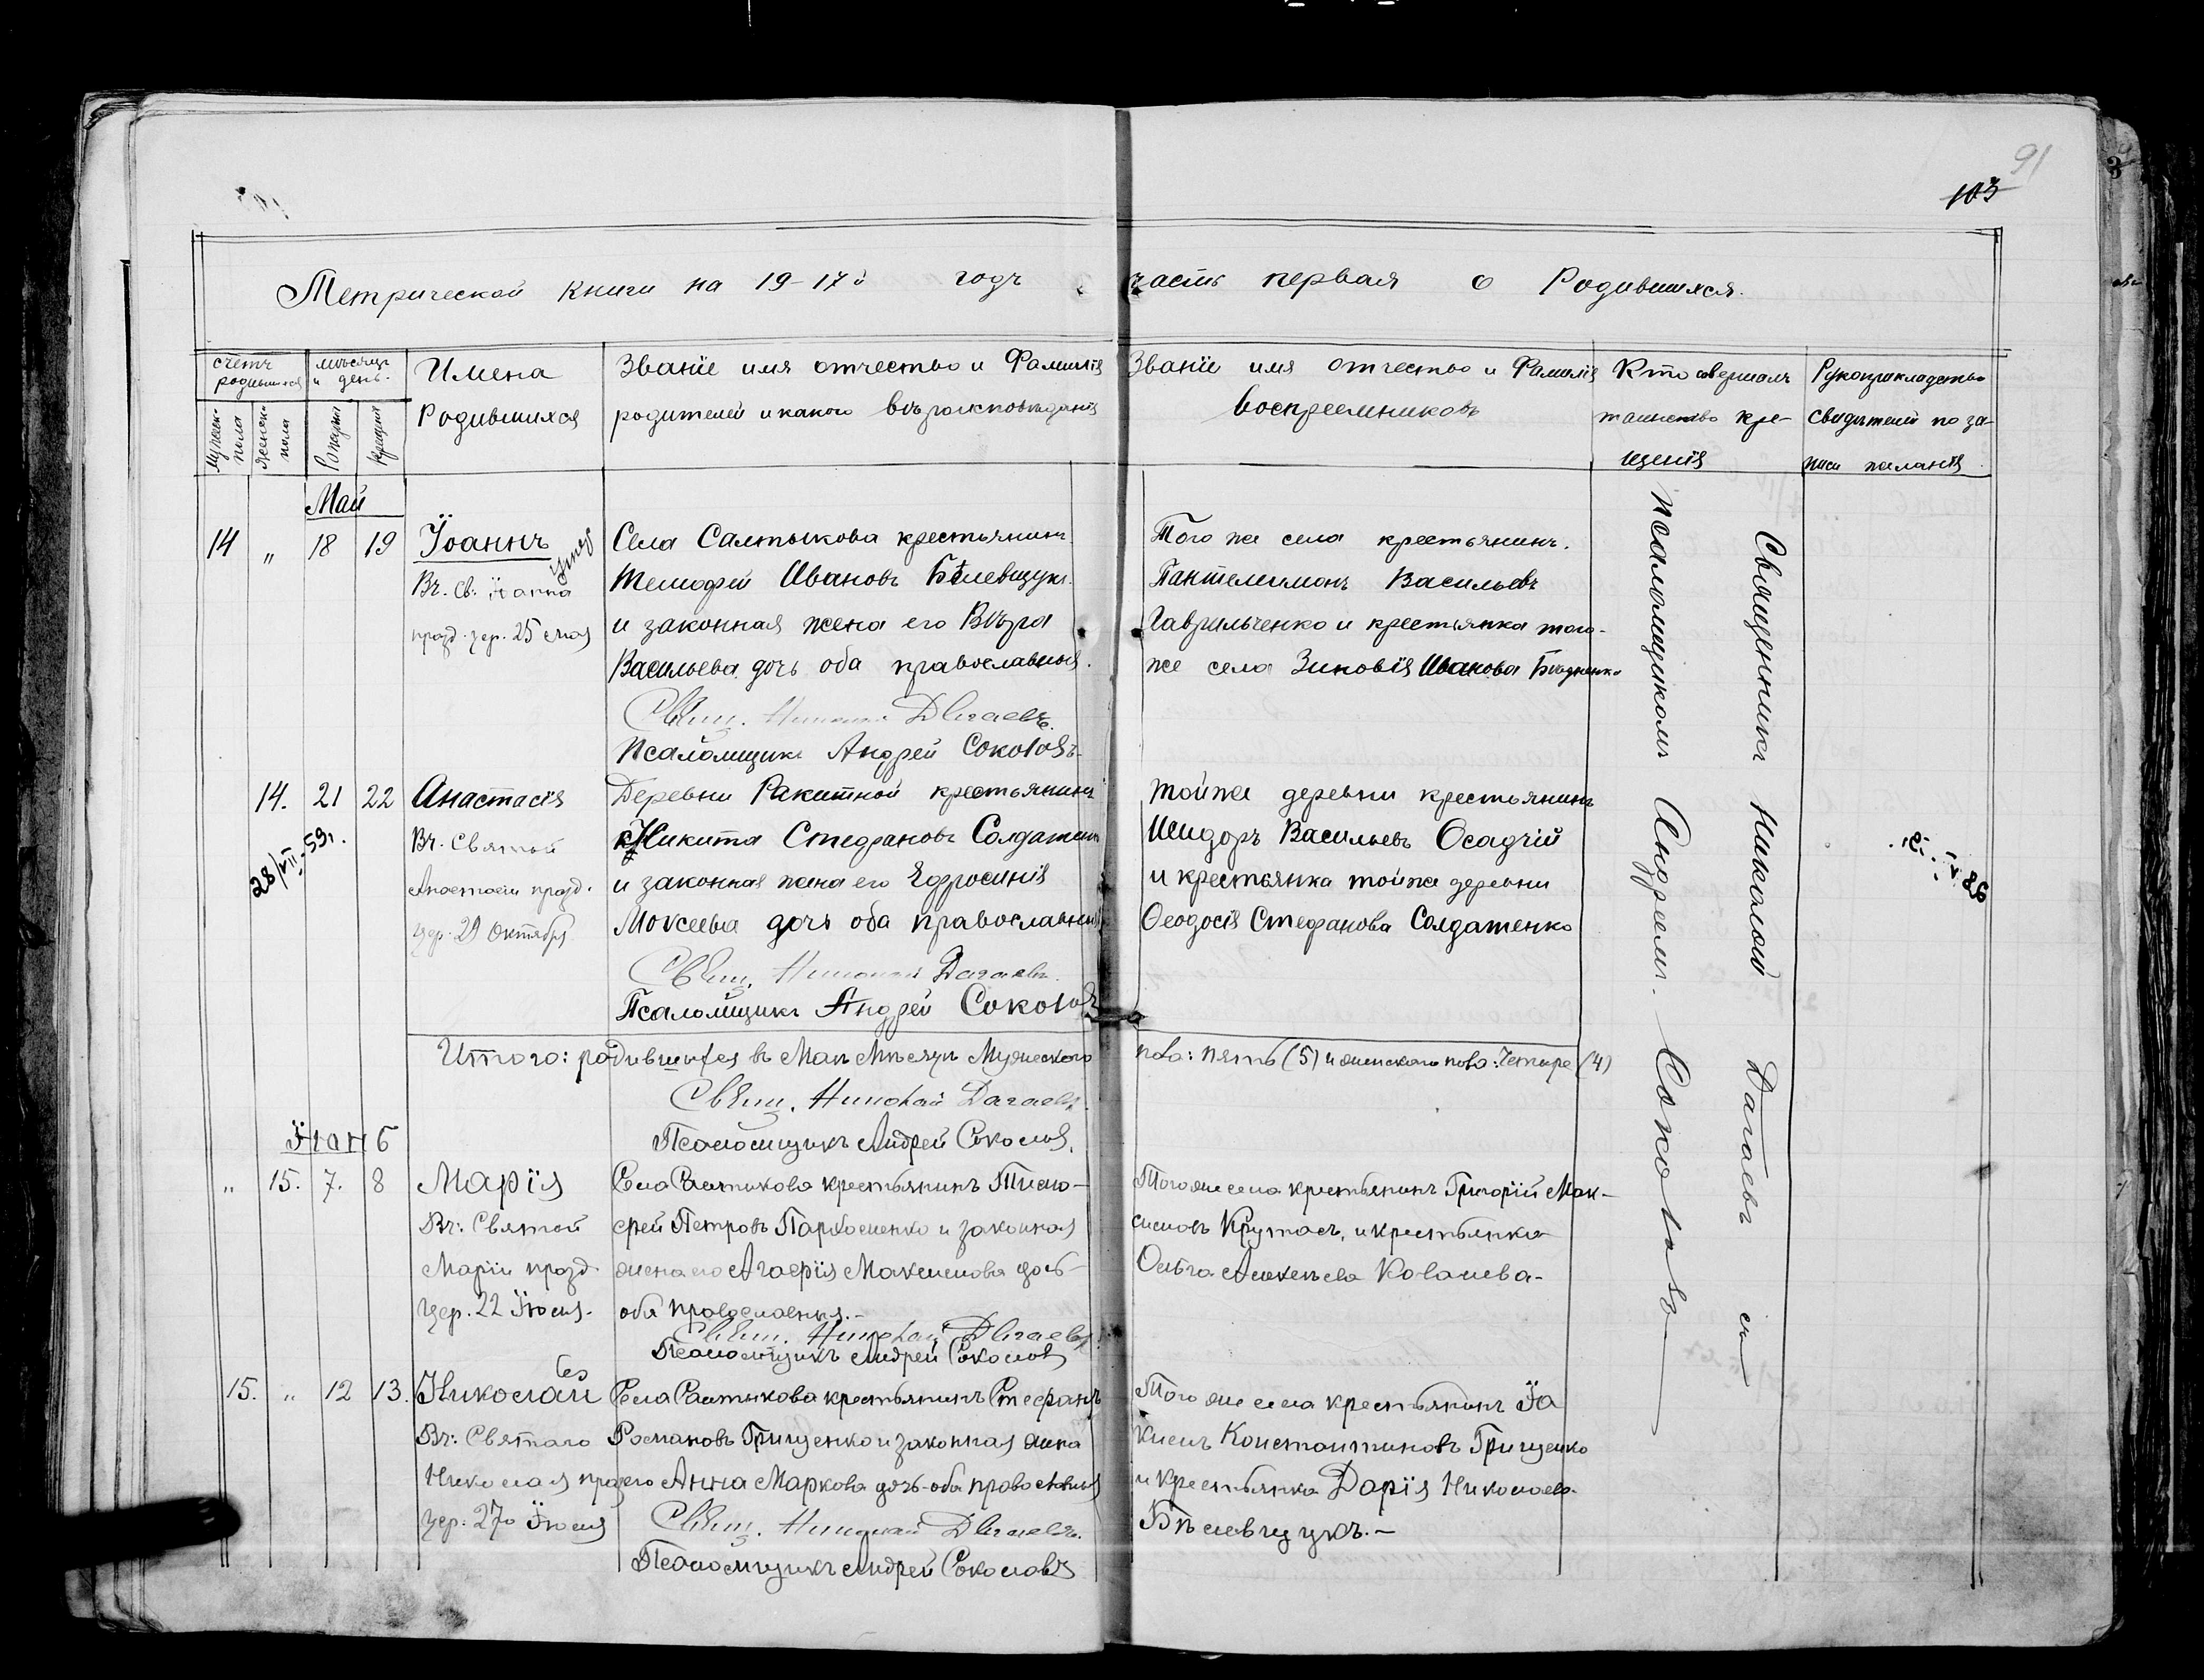 91
103
Метрической книги на 19-17й годъ часть первая о Родившихся.
счетъ родившихся
мѣсяцъ и день.
Имена Родившихся
Званіе имя отчество и Фамилія
родителей и какого вѣроисповѣданія
Званіе имя отчество и Фамилія
воспреемниковъ
Кто совершалъ
таинство кре-
щенія
Рукоприкладство
свидѣтелей по за-
писи желанія
Мужеск. пола
Женск. пола
Рожденія
Крещенія
Май
14 " 18 19 Іоаннъ
умер
Вч. Св. Іоанна
празд. цер. 25 мая
Села Салтыкова крестьянинъ
Тимофей Ивановъ Билевщукъ
и законная жена его Вѣра
Васильева дочь оба православныя.
Свящ. Николай Дагаевъ.
Псаломщикъ Андрей Соколовъ
Того же села крестьянинъ.
Пантелимонъ Васильевъ
Гаврильченко и крестьянка того-
же села Зиновія Иванова
14. 21 22 Анастасія
28/VII.-59г.
Вч. Святой
Анастасіи празд.
цер. 29 Октября
Деревни Ракитной крестьянинъ
Никита Стефановъ Солдатенко
и законная жена его Ефросинія
Моксеева дочь оба православныя
Свящ. Николай Дагаевъ.
Псаломщикъ Андрей Соколовъ
Тойже деревни крестьянинъ
Исидоръ Васильевъ Осадчій
и крестьянка тойже деревни
Ѳеодосія Стефанова Солдатенко
Итого: родившихся въ Маѣ Мѣсяцѣ Мужескаго пола: пять (5) и женскаго пола: Четыре (4)
Свящ. Николай Дагаевъ.
Псаломщикъ Андрей Соколовъ.
Іюнь
" 15. 7. 8 Марія
Вч: Святой
Маріи празд.
Цер. 22 Іюля.
Села Салтыкова крестьянинъ Тимо-
фей Петровъ Пархоменко и законная
жена его Агафія Максимова дочь
оба православныя.-
Свящ. Николай Дагаевъ.
Псаломщикъ Андрей Соколовъ
Того же села крестьянинъ Григорій Мак-
симовъ Крутасъ, и крестьянка
Ольга Алексѣева Ковалева-
15. " 12 13. Николай
Вч: Святаго
Николая празд
Цер: 27го Іюля
Села Салтыкова крестьянинъ Стефанъ
Романовъ Грищенко и законная жена
его Анна Маркова дочь-оба православныя
Свящ. Николай Дагаевъ.
Псаломщикъ Андрей Соколовъ
Того же села крестьянинъ Іа
кимъ Константиновъ Грищенко
и крестьянка Дарія Николаева
Бѣлевщукъ.-
Священникъ Николай Дагаевъ съ
псаломщикомъ Андреемъ Соколовъ